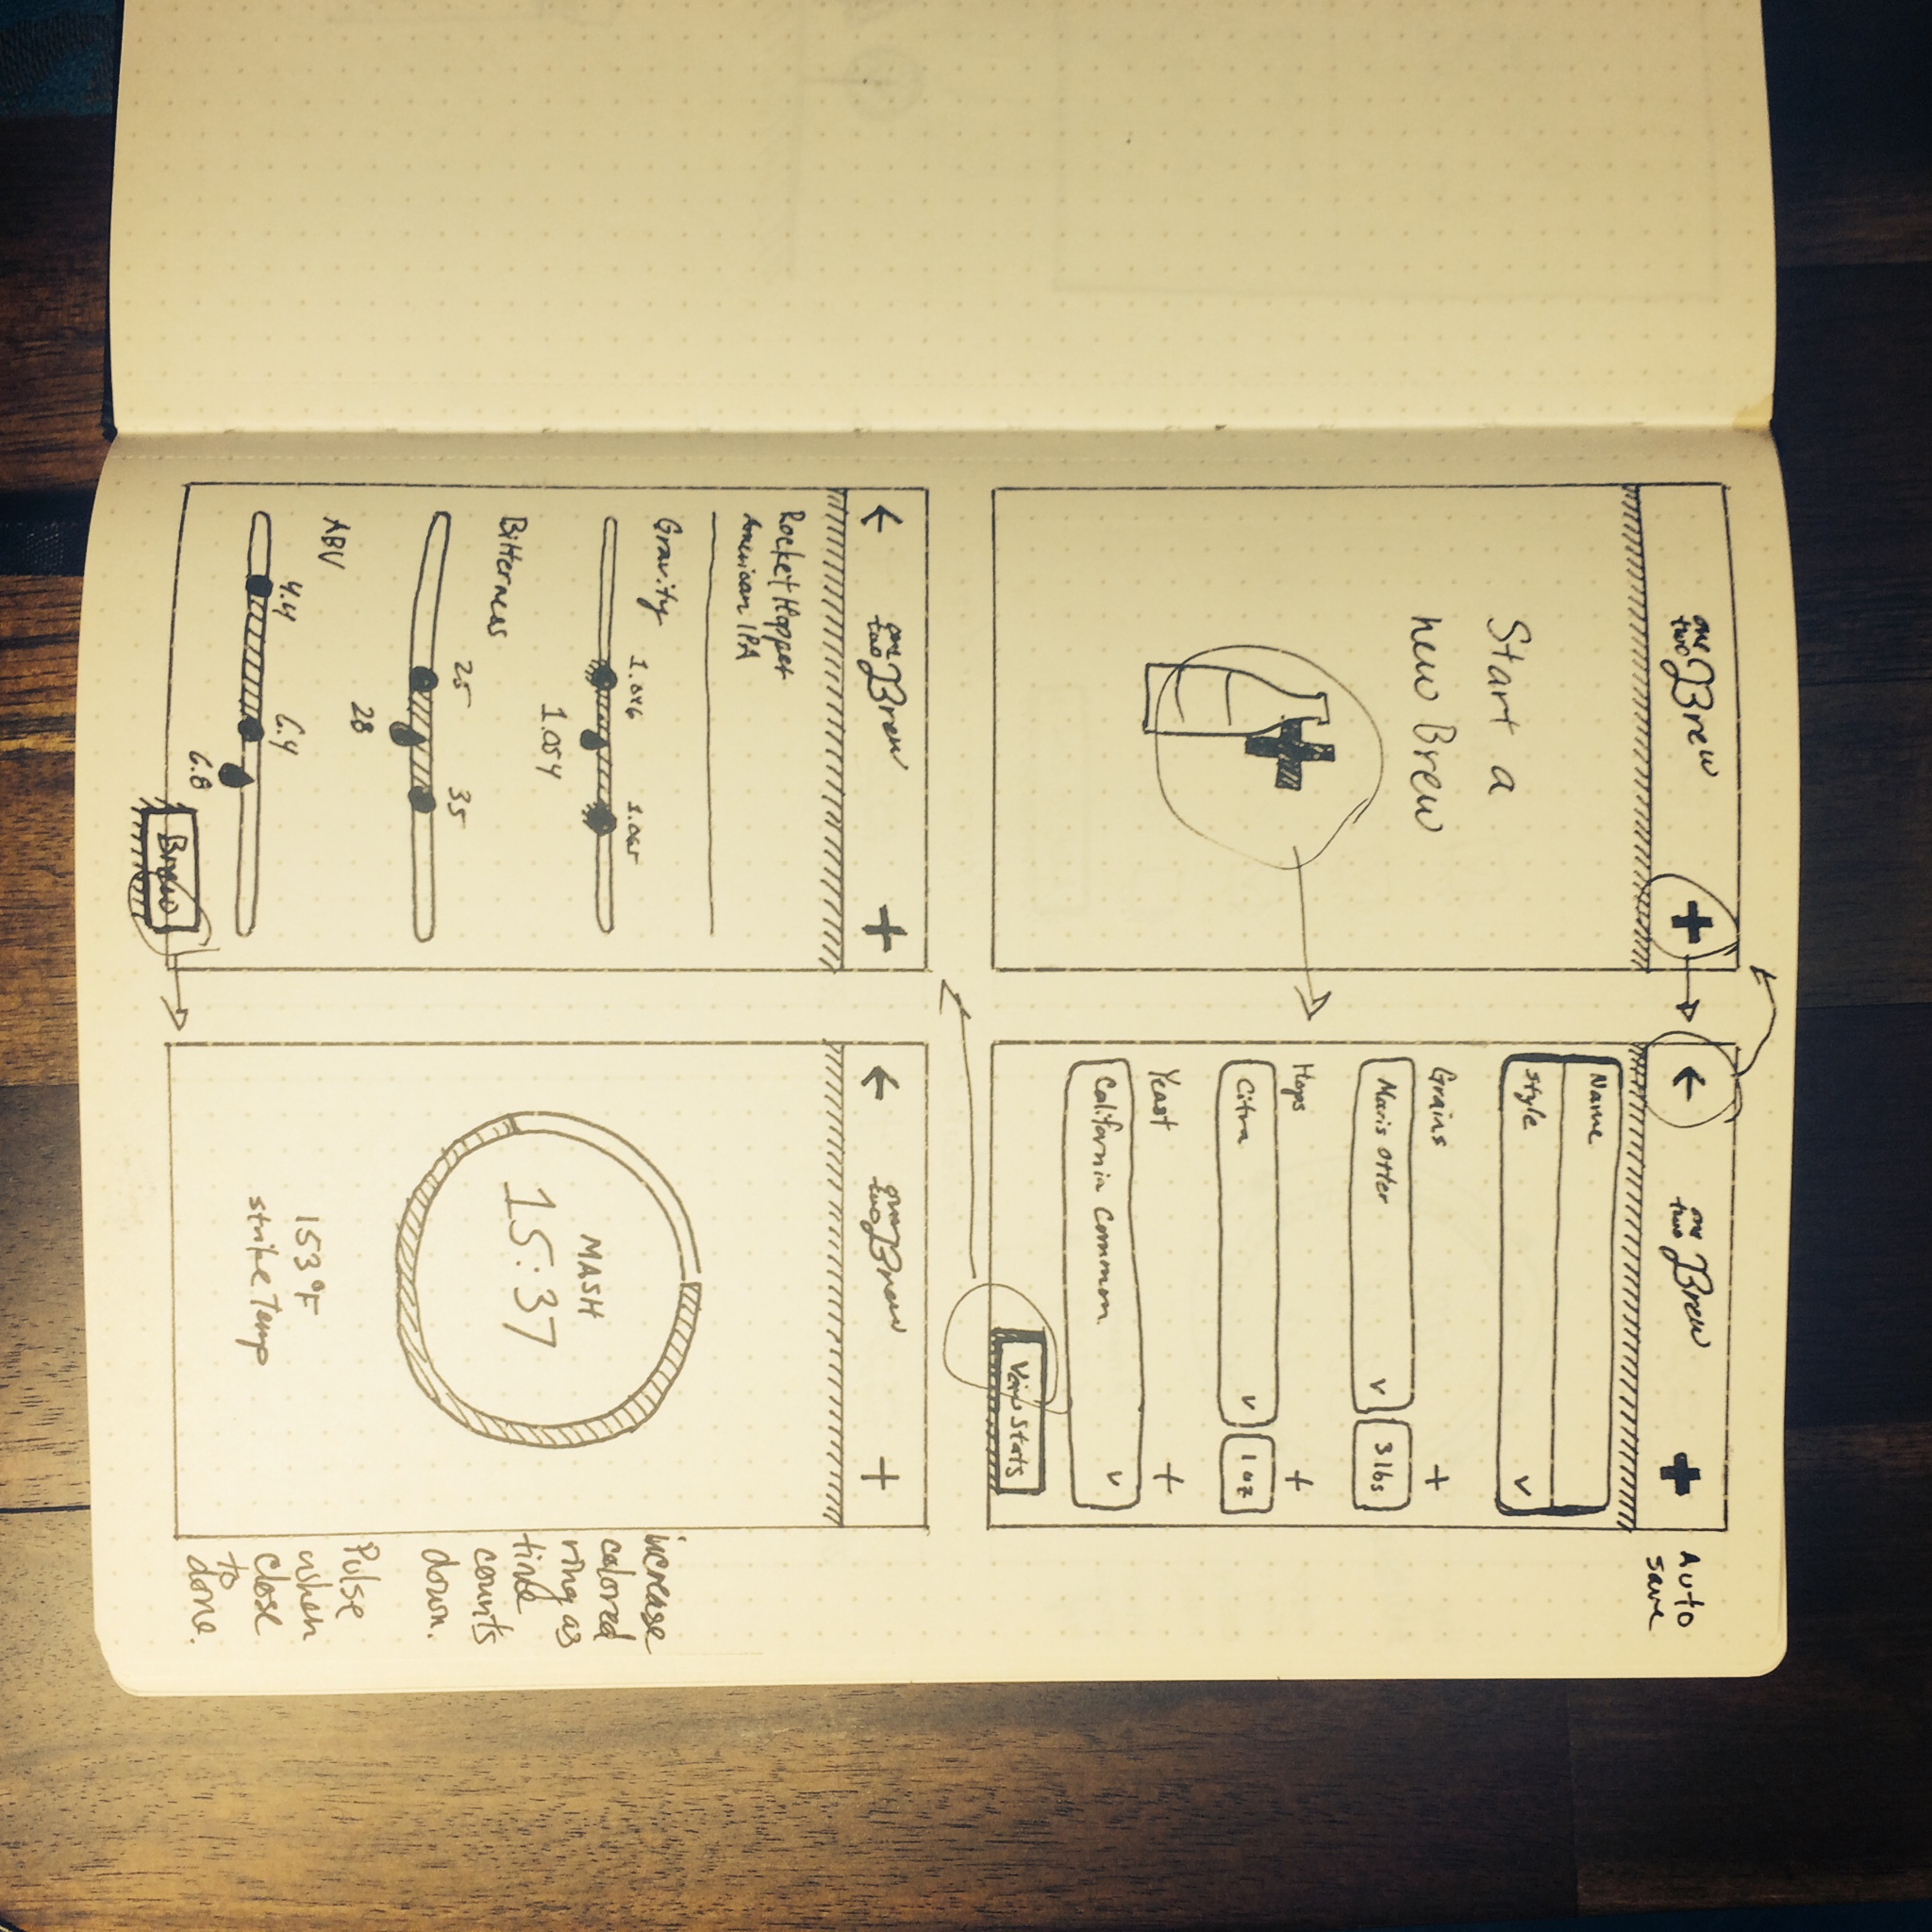 one
two Brew +
Start a
new Brew
← one
two Brew +
Auto
save
Name
Style v
Grains +
Maris Otter v 3 lbs
Hops +
Citra v 1 oz
Yeast +
California Common v
View Stats
← one
two Brew +
Rocket Hopper
American IPA
Gravity
1.046 1.065
1.054
Bitterness
25 35
28
ABV
4.4 6.4
6.8
Brew
← one
two Brew +
MASH
15:37
153°F
strike temp
increase
colored
ring as
time
counts
down.
Pulse
when
close
to
done.